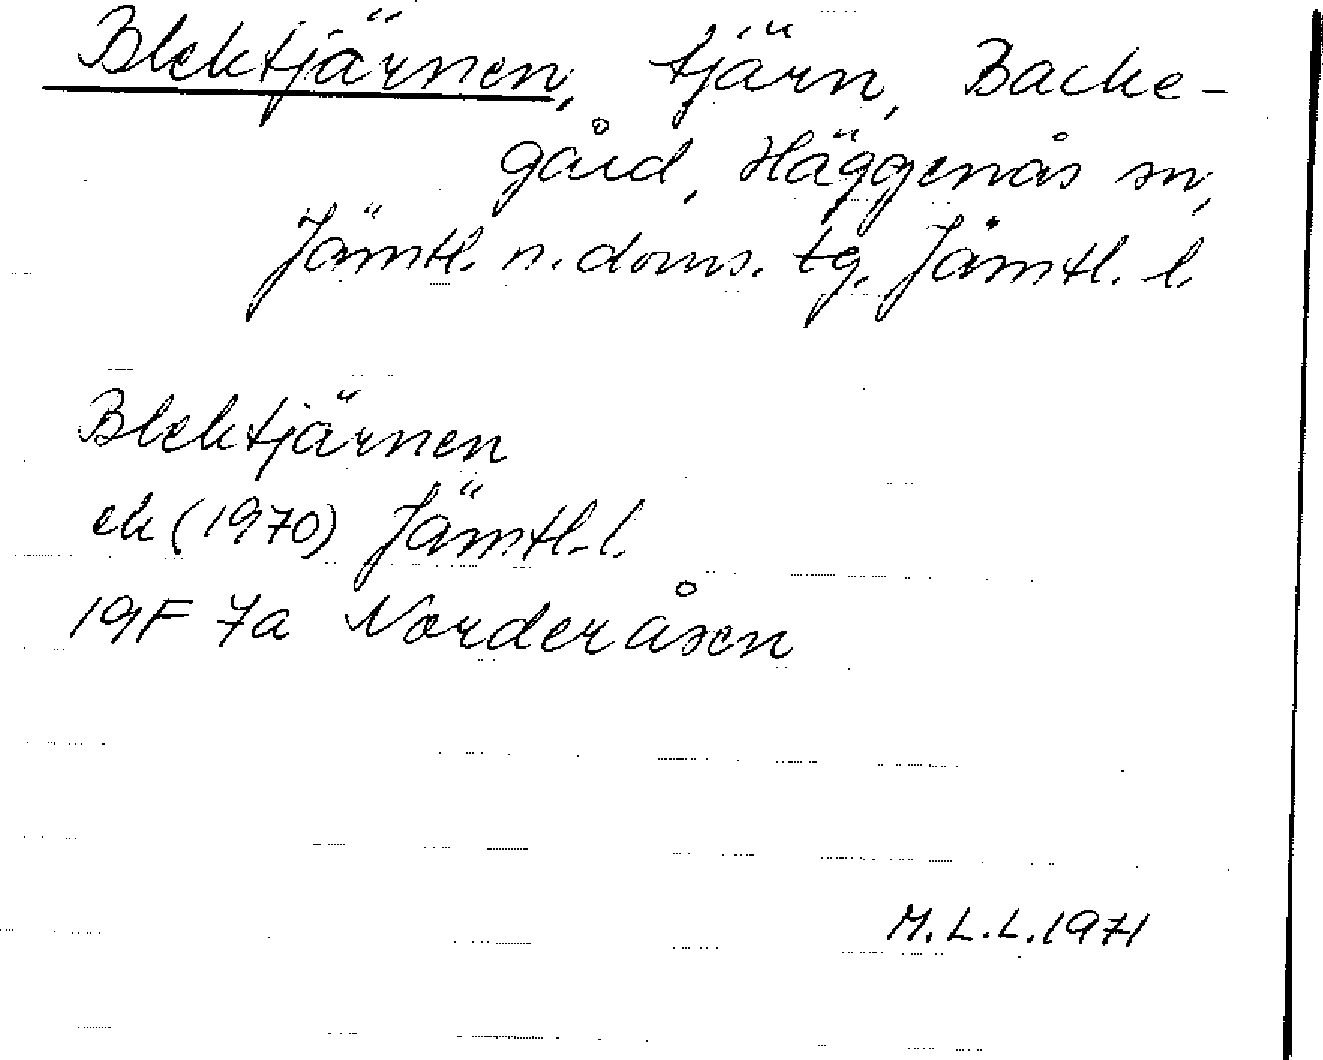 Blektjärnen, tjärn, Backe-
gård, Häggenås sn,
Jämtl. n. doms. tg. Jämtl. l.
Blektjärnen
ek (1970) Jämtl. l.
19F 7a Norderåsen
M.L.L. 1971